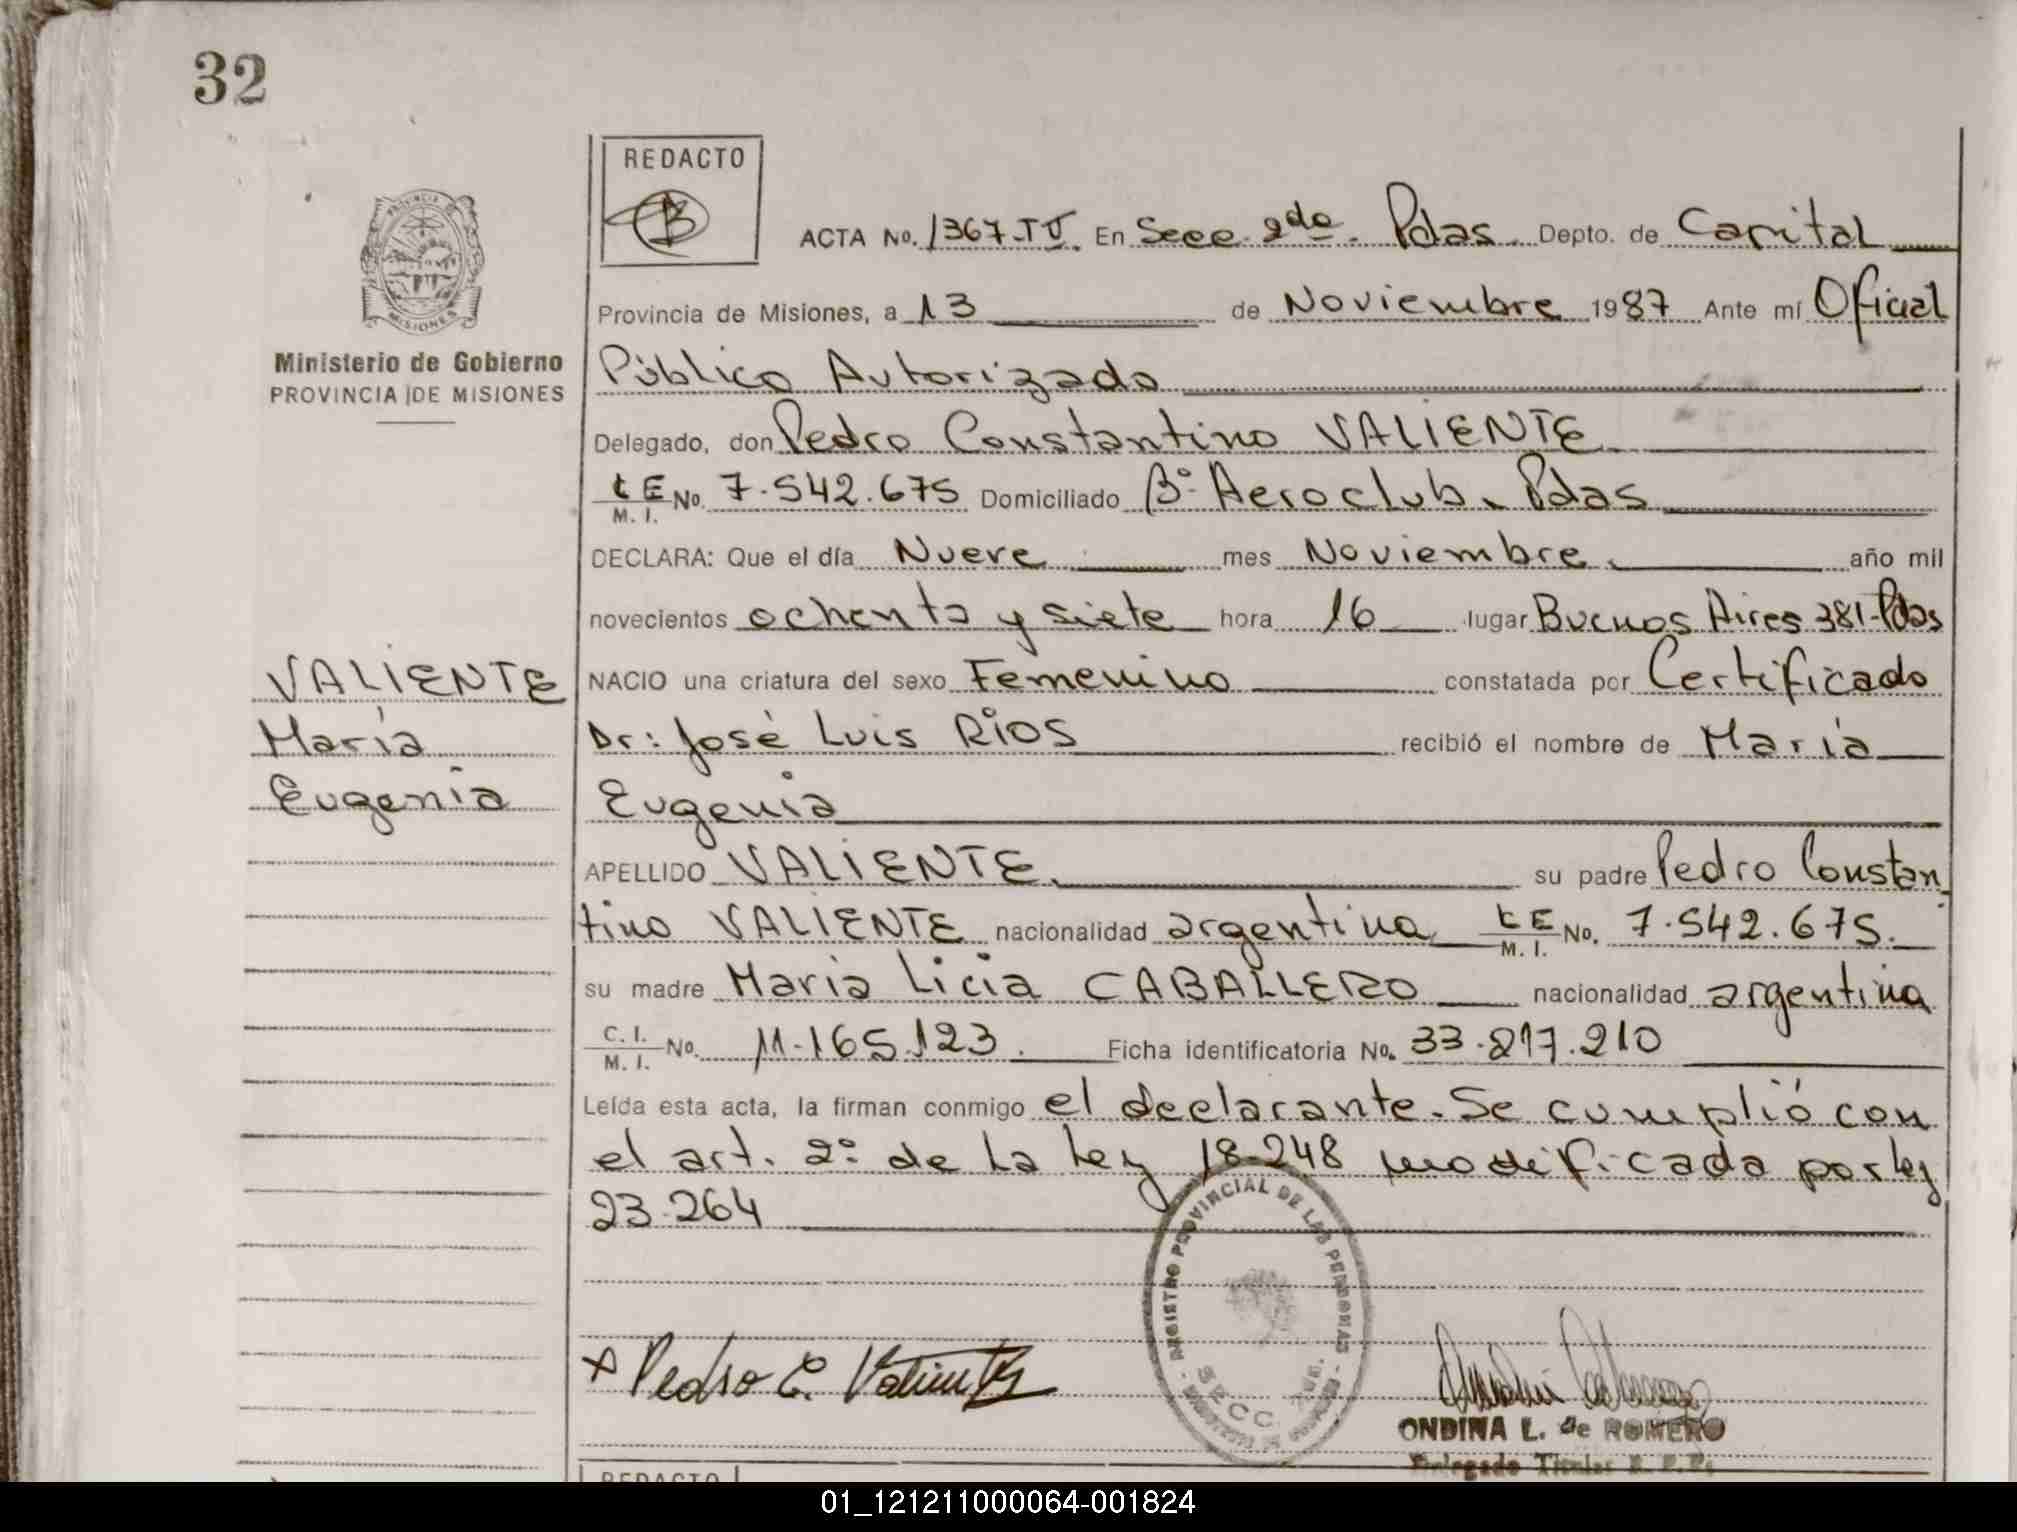 32
REDACTO
ACTA No. 1367-TV. En Secc. 2da. Pdas. Depto. de Capital
PROVINCIA DE
MISIONES
Ministerio de Gobierno
PROVINCIA DE MISIONES
Provincia de Misiones, a 13 de Noviembre 1987 Ante mí Oficial
Público Autorizado
Delegado, don Pedro Constantino VALIENTE
L E M. I. No. 7.542.675 Domiciliado B° Aeroclub. Pdas
DECLARA: Que el día Nueve mes Noviembre año mil
novecientos ochenta y siete hora 16 lugar Buenos Aires 381-Pdas
VALIENTE
María
Eugenia
NACIO una criatura del sexo Femenino constatada por Certificado
Dr: José Luis RÍOS recibió el nombre de María
Eugenia
APELLIDO VALIENTE su padre Pedro Constan
tino VALIENTE nacionalidad argentina L E M. I. No. 7.542.675.
su madre María Licia CABALLERO nacionalidad argentina
C. I. M. I. No. 11.165.123. Ficha identificatoria No. 33.217.210
Leída esta acta, la firman conmigo el declarante. Se cumplió con
el art. 2° de la Ley 18.248 modificada por ley
23.264
REGISTRO PROVINCIAL DE LAS PERSONAS
SECC.
Pedro C. Valiente
ONDINA L. de ROMERO
Delegado Titular R. P. P.
REDACTO
01_121211000064-001824